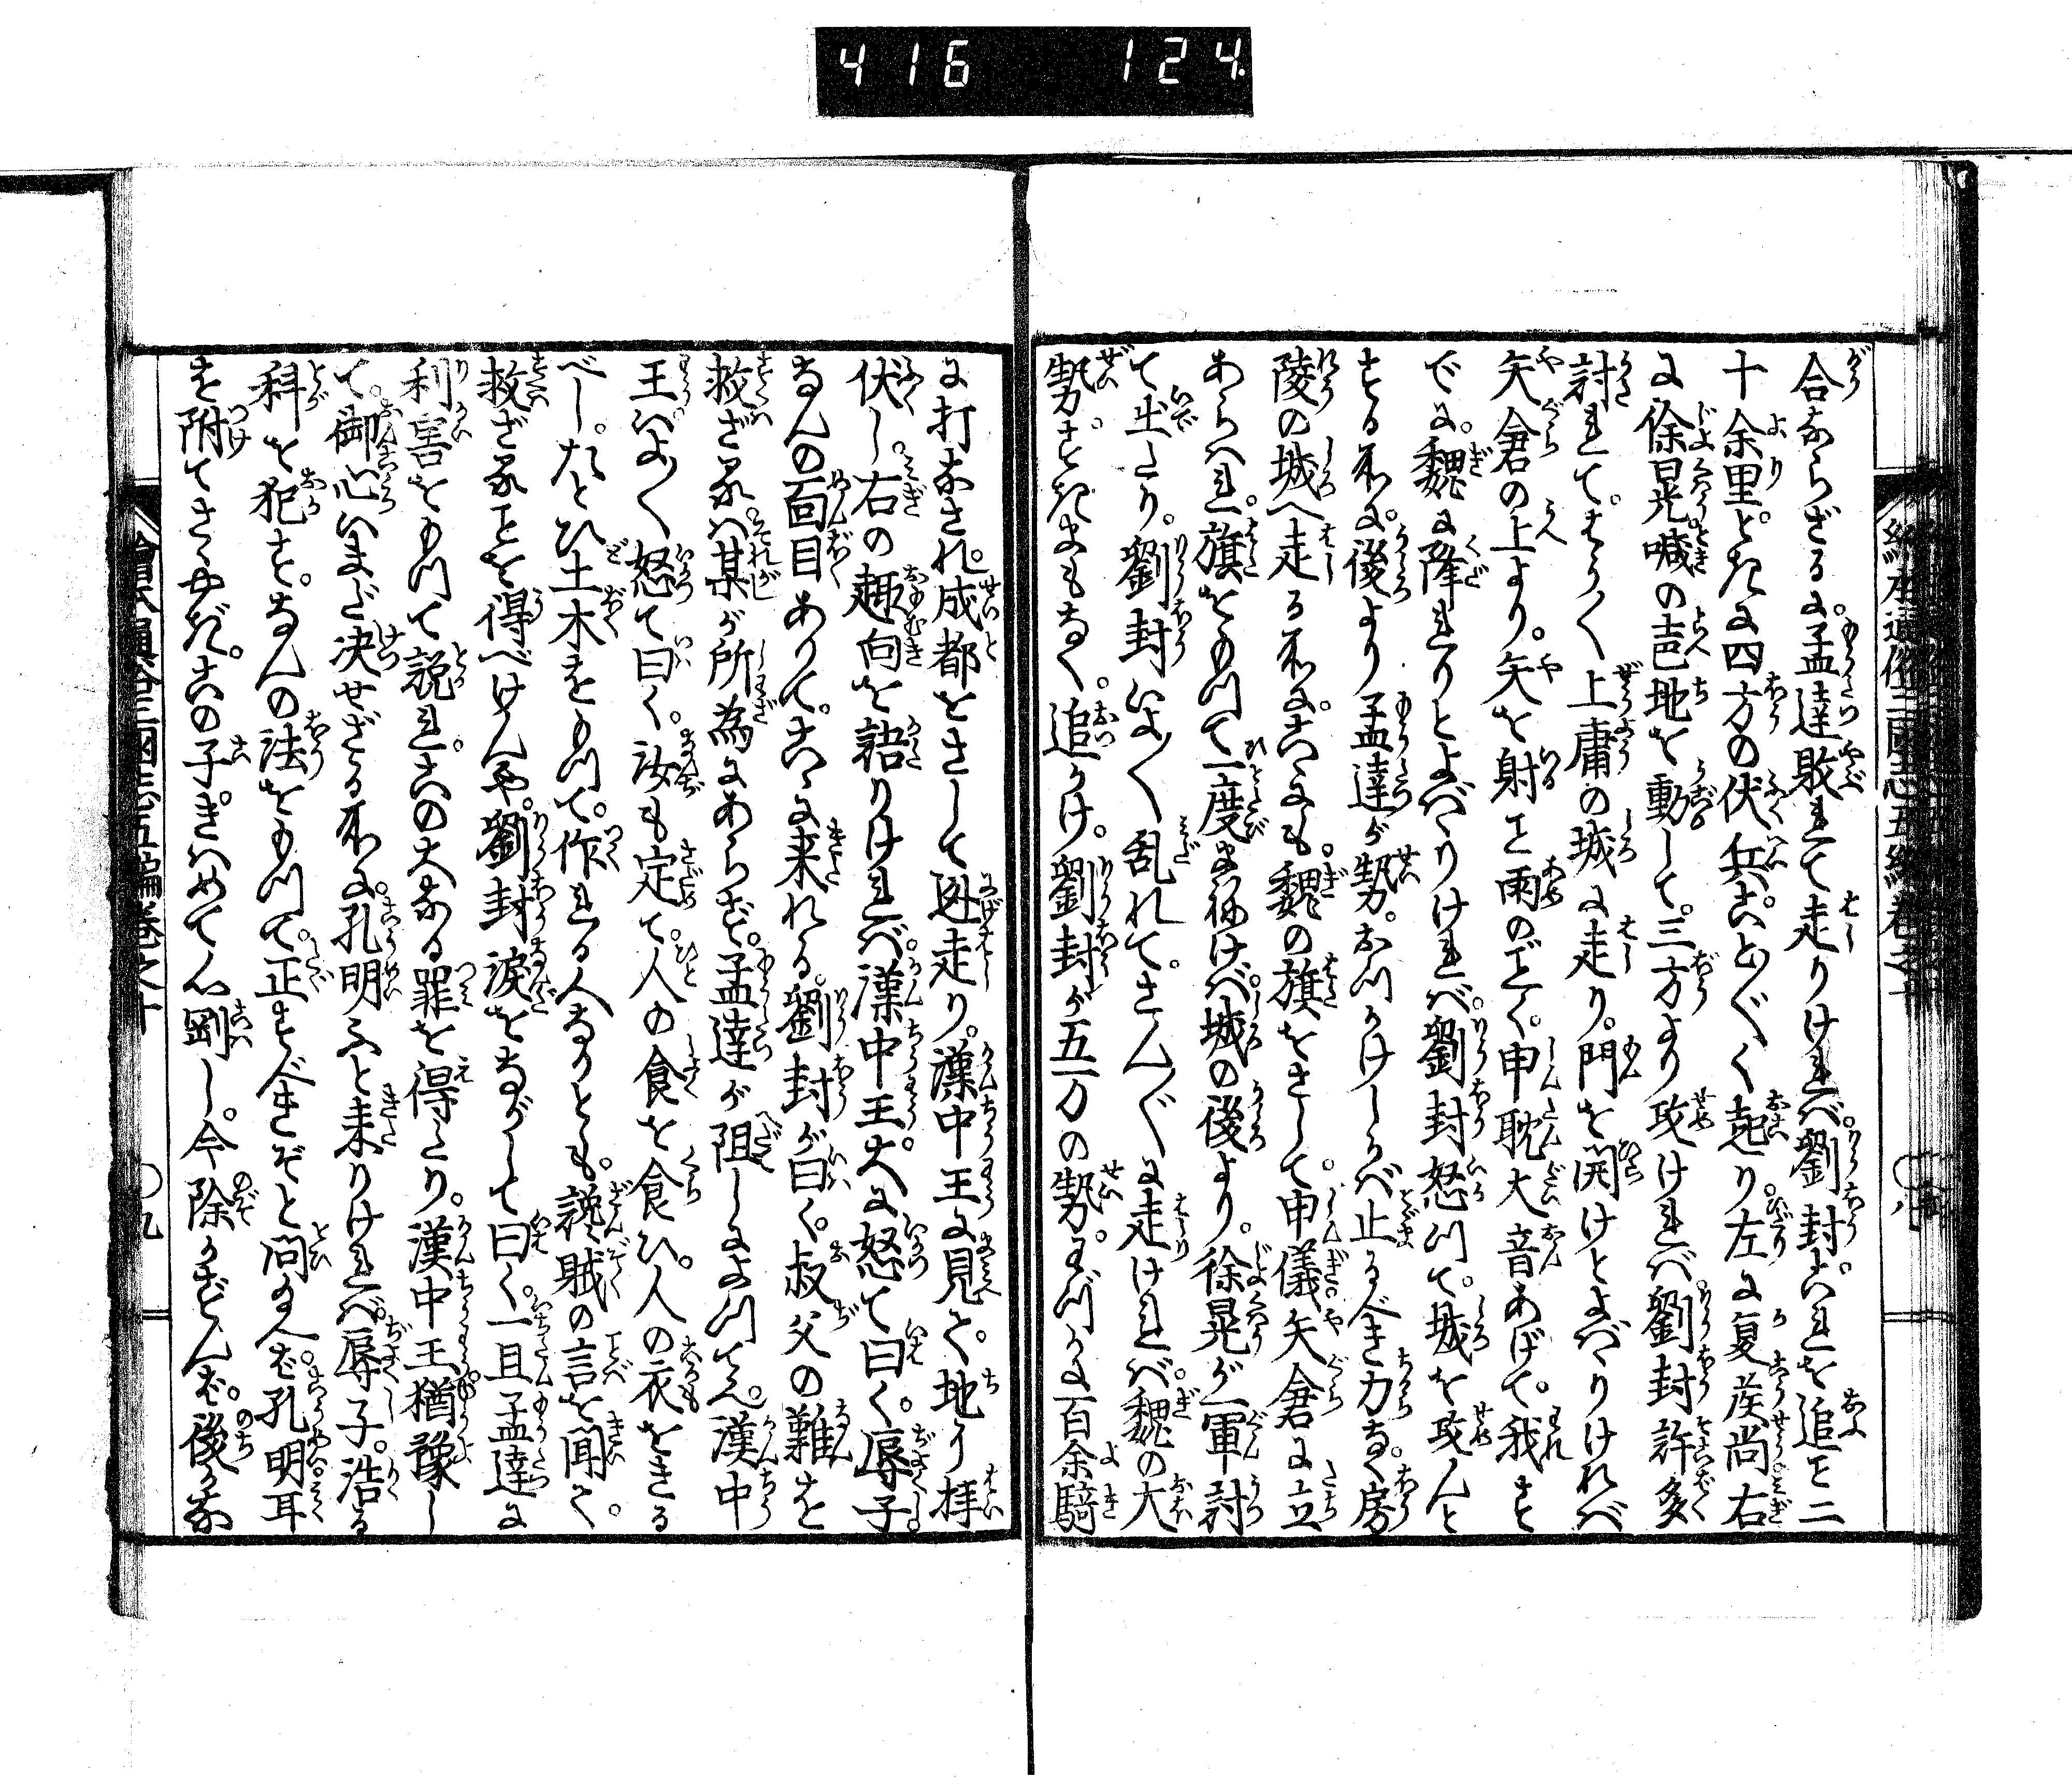 416 124
合ならざるに。孟達敗れて走りければ。劉封。これを追こと二
十余里。ときに四方の伏兵。ことごとく起り。左に夏侯尚右
に徐晃。喊の声地を動して。三方より攻ければ。劉封許多
討れて。やうやく上庸の城に走り。門を開けとよばりければ
矢倉の上より。矢を射こと雨のごとく。申耽大音あげて。我す
でに。魏に降れりとよばりければ。劉封怒つて。城を攻んと
する所に。後より孟達が勢。おつかけしかば止るべき力なく。房
陵の城へ走る所に。こゝにも。魏の旗をさして。申儀。矢倉に立
あらはれ。旗をもつて一度まねけば。城の後より。徐晃が一軍討
て出たり。劉封いよ〳〵乱れて。さん〴〵に走ければ。魏の大
勢。すきまもなく。追かけ。劉封が五万の勢。わづかに百余騎
に打なされ。成都をさして逃走り。漢中王に見て。地に拝
伏し。右の趣向を語りければ。漢中王大に怒て曰く。辱子
なんの面目ありて。こゝに来れる。劉封が曰く。叔父の難を
救ざるは。某が所為にあらず。孟達が阻しによつて也。漢中
王いよ〳〵怒て曰く。汝も定て。人の食を食ひ。人の衣をきる
べし。たとひ土木をもつて。作れる人なりとも。讒賊の言を聞て。
救ざることを得べけんや。劉封涙をながして曰く。一旦孟達に
利害をもつて説れ。この大なる罪を得たり。漢中王猶豫し
て。御心いまだ決せざる所に。孔明ふと来りければ。辱子。浩る
科を犯す。なんの法をもつて。正すべきぞと問給へば。孔明耳
を附てさゝやぎ。この子。きはめて心剛し。今除かずんば。後かな